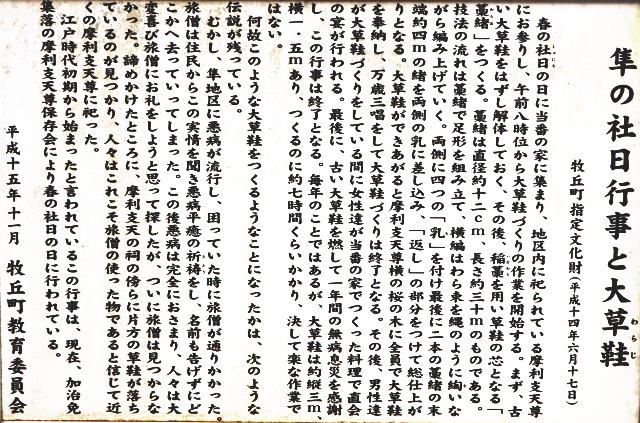 隼の社日行事と大草鞋
わらじ
牧丘町指定文化財(平成十四年六月十七日)
春の社日の日に当番の家に集まり、地区内に祀られている摩利支天尊
にお参りし、午前八時位から大草鞋づくりの作業を開始する。まず、古
い大草鞋をはずし解体しておく、その後、稲藁を用い草鞋の芯となる「
藁緒」をつくる。藁緒は直径約十二cm、長さ約三十mのものである。
技法の流れは藁緒で足形を組み立て、横編はわら束を縄のように綯いな
がら編み上げていく。両側に四つの「乳」を付け最後に二本の藁緒の末
端約四mの緒を両側の乳に差し込み、「返し」の部分をつけて総仕上が
りとなる。大草鞋ができあがると摩利支天尊横の桜の木に全員で大草鞋
を奉納し、万歳三唱をして大草鞋づくりは終了となる。その後、男性達
が大草鞋づくりをしている間に女性達が当番の家でつくった料理で直会
の宴が行われる。最後に、古い大草鞋を燃して一年間の無病息災を感謝
し、この行事は終了となる。毎年のことではあるが、大草鞋は約縦三m、
横一・五mあり、つくるのに約七時間くらいかかり、決して楽な作業で
はない。
何故このような大草鞋をつくるようなことになったかは、次のような
伝説が残っている。
むかし、隼地区に悪病が流行し、困っていた時に旅僧が通りかかった。
旅僧は住民からこの実情を聞き悪病平癒の祈祷をし、名前も告げずにど
こかへ去っていってしまった。この後悪病は完全におさまり、人々は大
変喜び旅僧にお礼をしようと思って探したが、ついに旅僧は見つからな
かった。諦めかけたところに、摩利支天の祠の傍らに片方の草鞋が落ち
ているのが見つかり、人々はこれこそ旅僧の使った物であると信じて近
くの摩利支天尊に祀った。
江戸時代初期から始まったと言われているこの行事は、現在、加治免
集落の摩利支天尊保存会により春の社日の日に行われている。
平成十五年十一月 牧丘町教育委員会